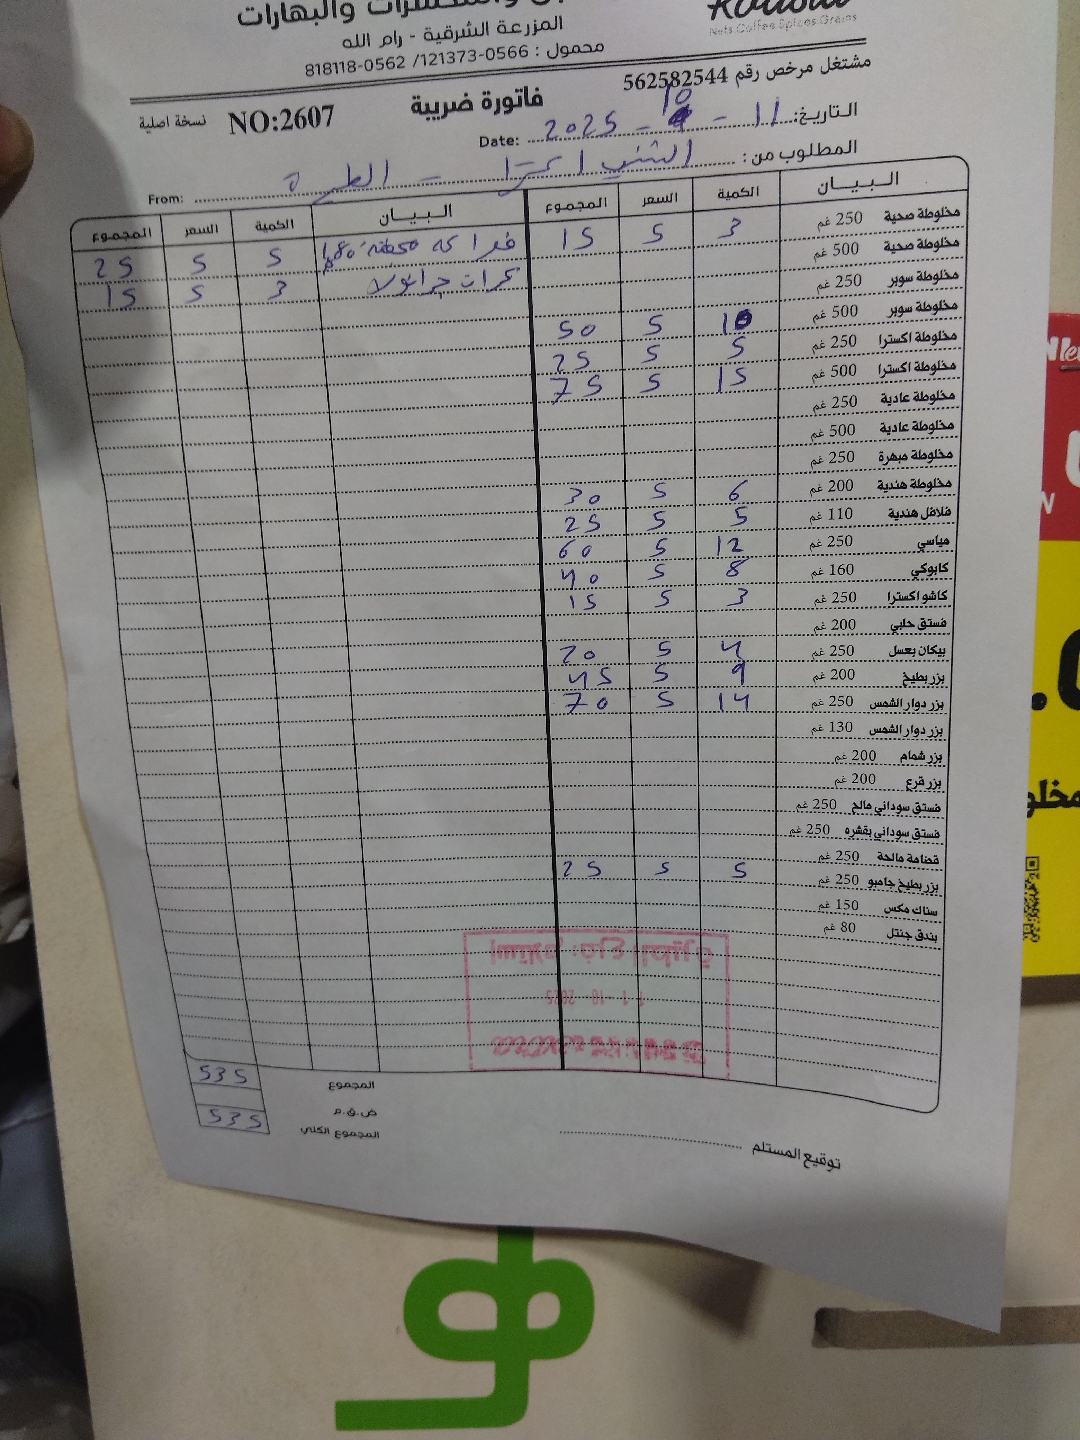 والبهارات
Nuts.Coffee.Spices.Grains
المزرعة الشرقية - رام الله
محمول : 0566-121373/ 0562-818118
مشتغل مرخص رقم 562582544
فاتورة ضريبة
NO:2607
نسخة اصلية
التاريخ: 11 - 10 - 2025 Date:
المطلوب من: الطيرة From:
البيان الكمية السعر المجموع البيان الكمية السعر المجموع
مخلوطة صحية 250 غم 3 5 15 5 5 25
مخلوطة صحية 500 غم كرات جرانولا 3 5 15
مخلوطة سوبر 250 غم
مخلوطة سوبر 500 غم 10 5 50
مخلوطة اكسترا 250 غم 5 5 25
مخلوطة اكسترا 500 غم 15 5 75
مخلوطة عادية 250 غم
مخلوطة عادية 500 غم
مخلوطة مبهرة 250 غم
مخلوطة هندية 200 غم 6 5 30
فلافل هندية 110 غم 5 5 25
مياسي 250 غم 12 5 60
كابوكي 160 غم 8 5 40
كاشو اكسترا 250 غم 3 5 15
فستق حلبي 200 غم
بيكان بعسل 250 غم 4 5 20
بزر بطيخ 200 غم 9 5 45
بزر دوار الشمس 250 غم 14 5 70
بزر دوار الشمس 130 غم
بزر شمام 200 غم
بزر قرع 200 غم
فستق سوداني مالح 250 غم
فستق سوداني بقشره 250 غم
قضامة مالحة 250 غم
بزر بطيخ جامبو 250 غم 5 5 25
سناك مكس 150 غم
بندق جنتل 80 غم
إستلام فرع الطيرة
المجموع 535
ض.ق.م
المجموع الكلي 535
توقيع المستلم